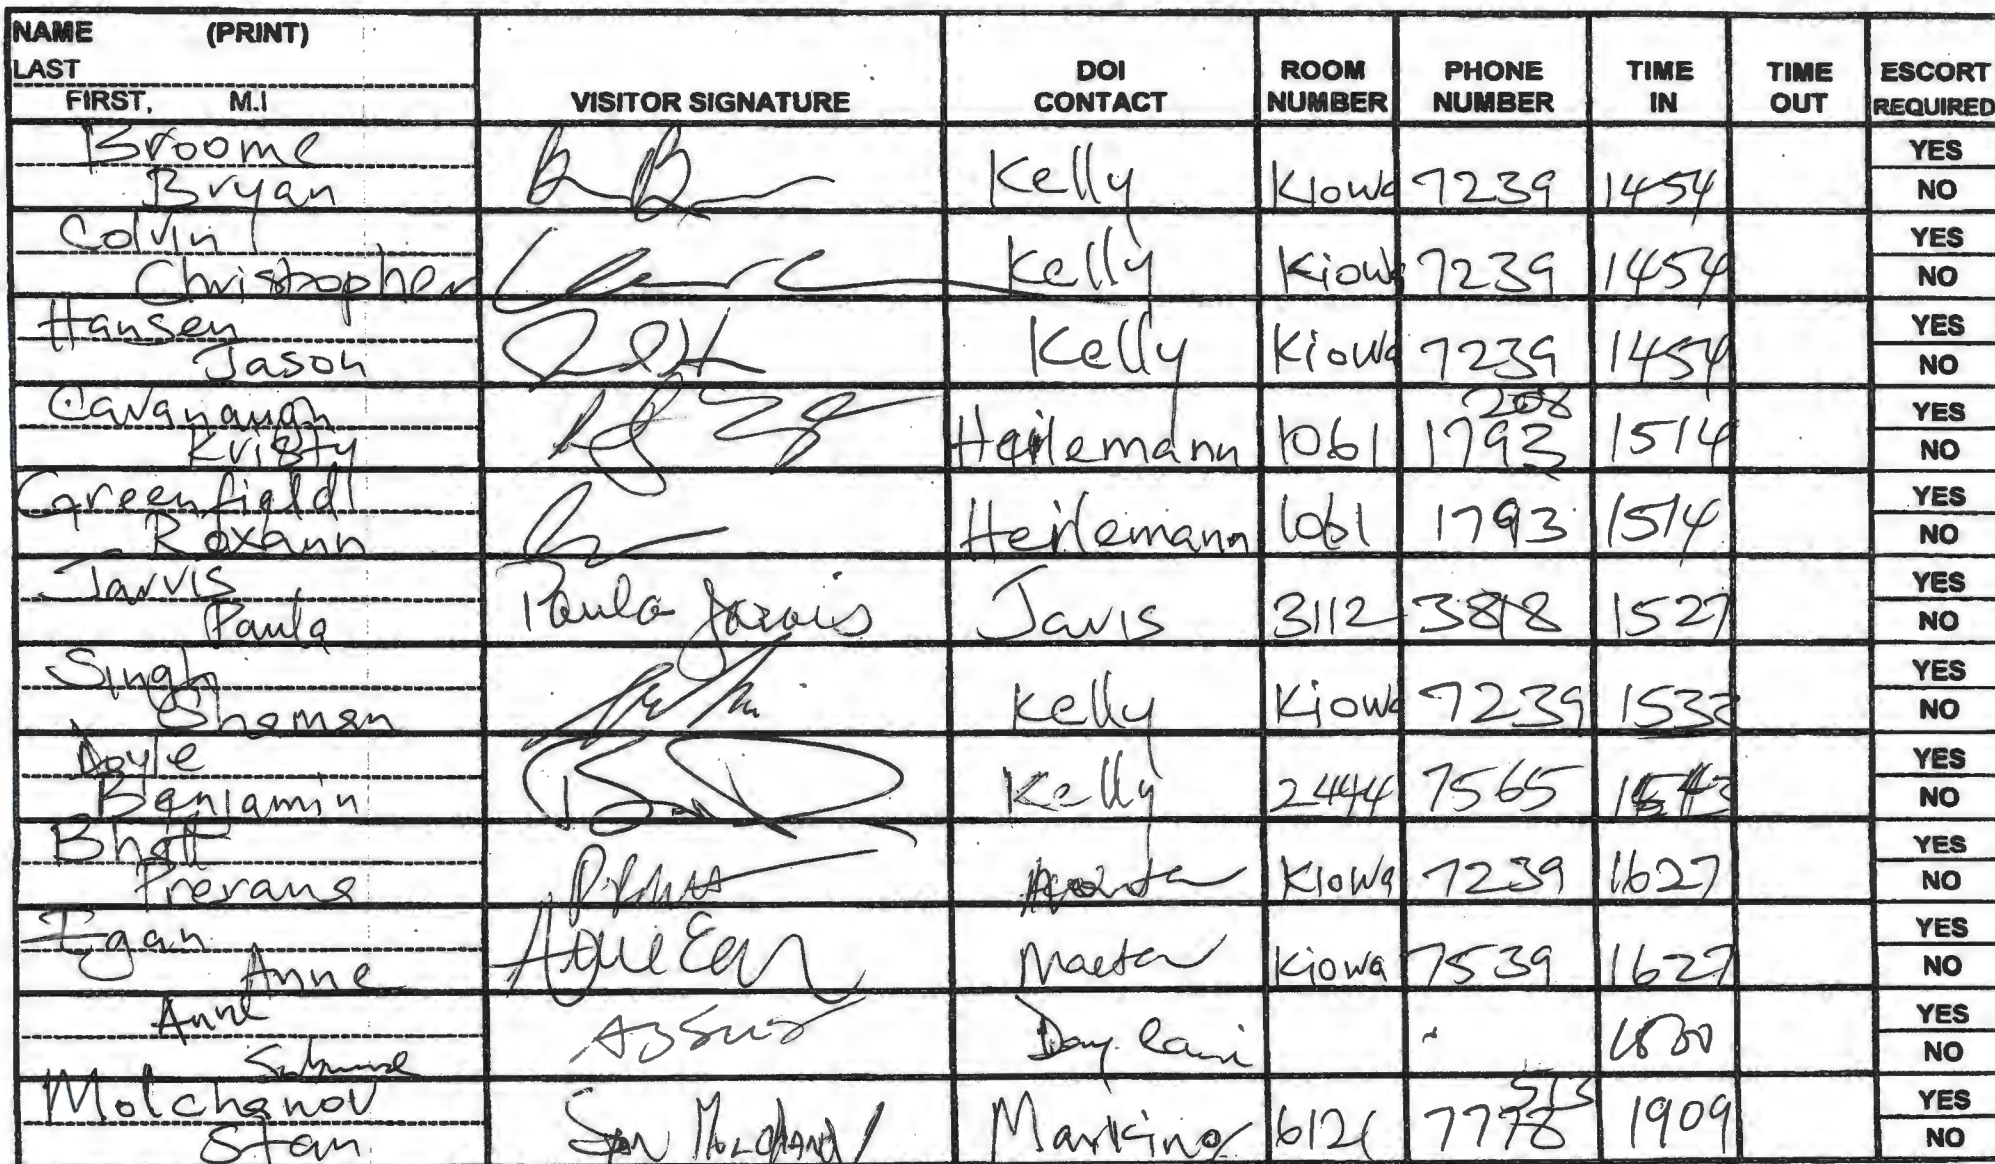 NAME (PRINT)
LAST
FIRST, M.I
VISITOR SIGNATURE
DOI CONTACT
ROOM NUMBER
PHONE NUMBER
TIME IN
TIME OUT
ESCORT REQUIRED
Broome
Bryan Kelly Kiowa 7239 1454 YES NO
Colvin
Christopher Kelly Kiowa 7239 1454 YES NO
Hansen
Jason Kelly Kiowa 7239 1454 YES NO
Cavanaugh 208
Kristy Heilemann 1061 1793 1514 YES NO
Greenfield
Roxann Heilemann 1061 1793 1514 YES NO
Jarvis
Paula Paula Jarvis Javis 3112 3818 1527 YES NO
Singh
Kelly Kiowa 7239 YES NO
Doyle
Benjamin Kelly 2444 7565 YES NO
Bhatt
Prerana Kiowa 7239 1627 YES NO
Egan
Anne Kiowa 7539 1627 YES NO
YES NO
Molchanov 513
Stan 7778 1909 YES NO